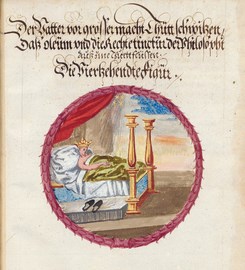 Der Vatter vor grosser macht Thutt schwitzen,
Das oleum und die Rechte tinctur der Philosophi
Die Vierzehendte Figur